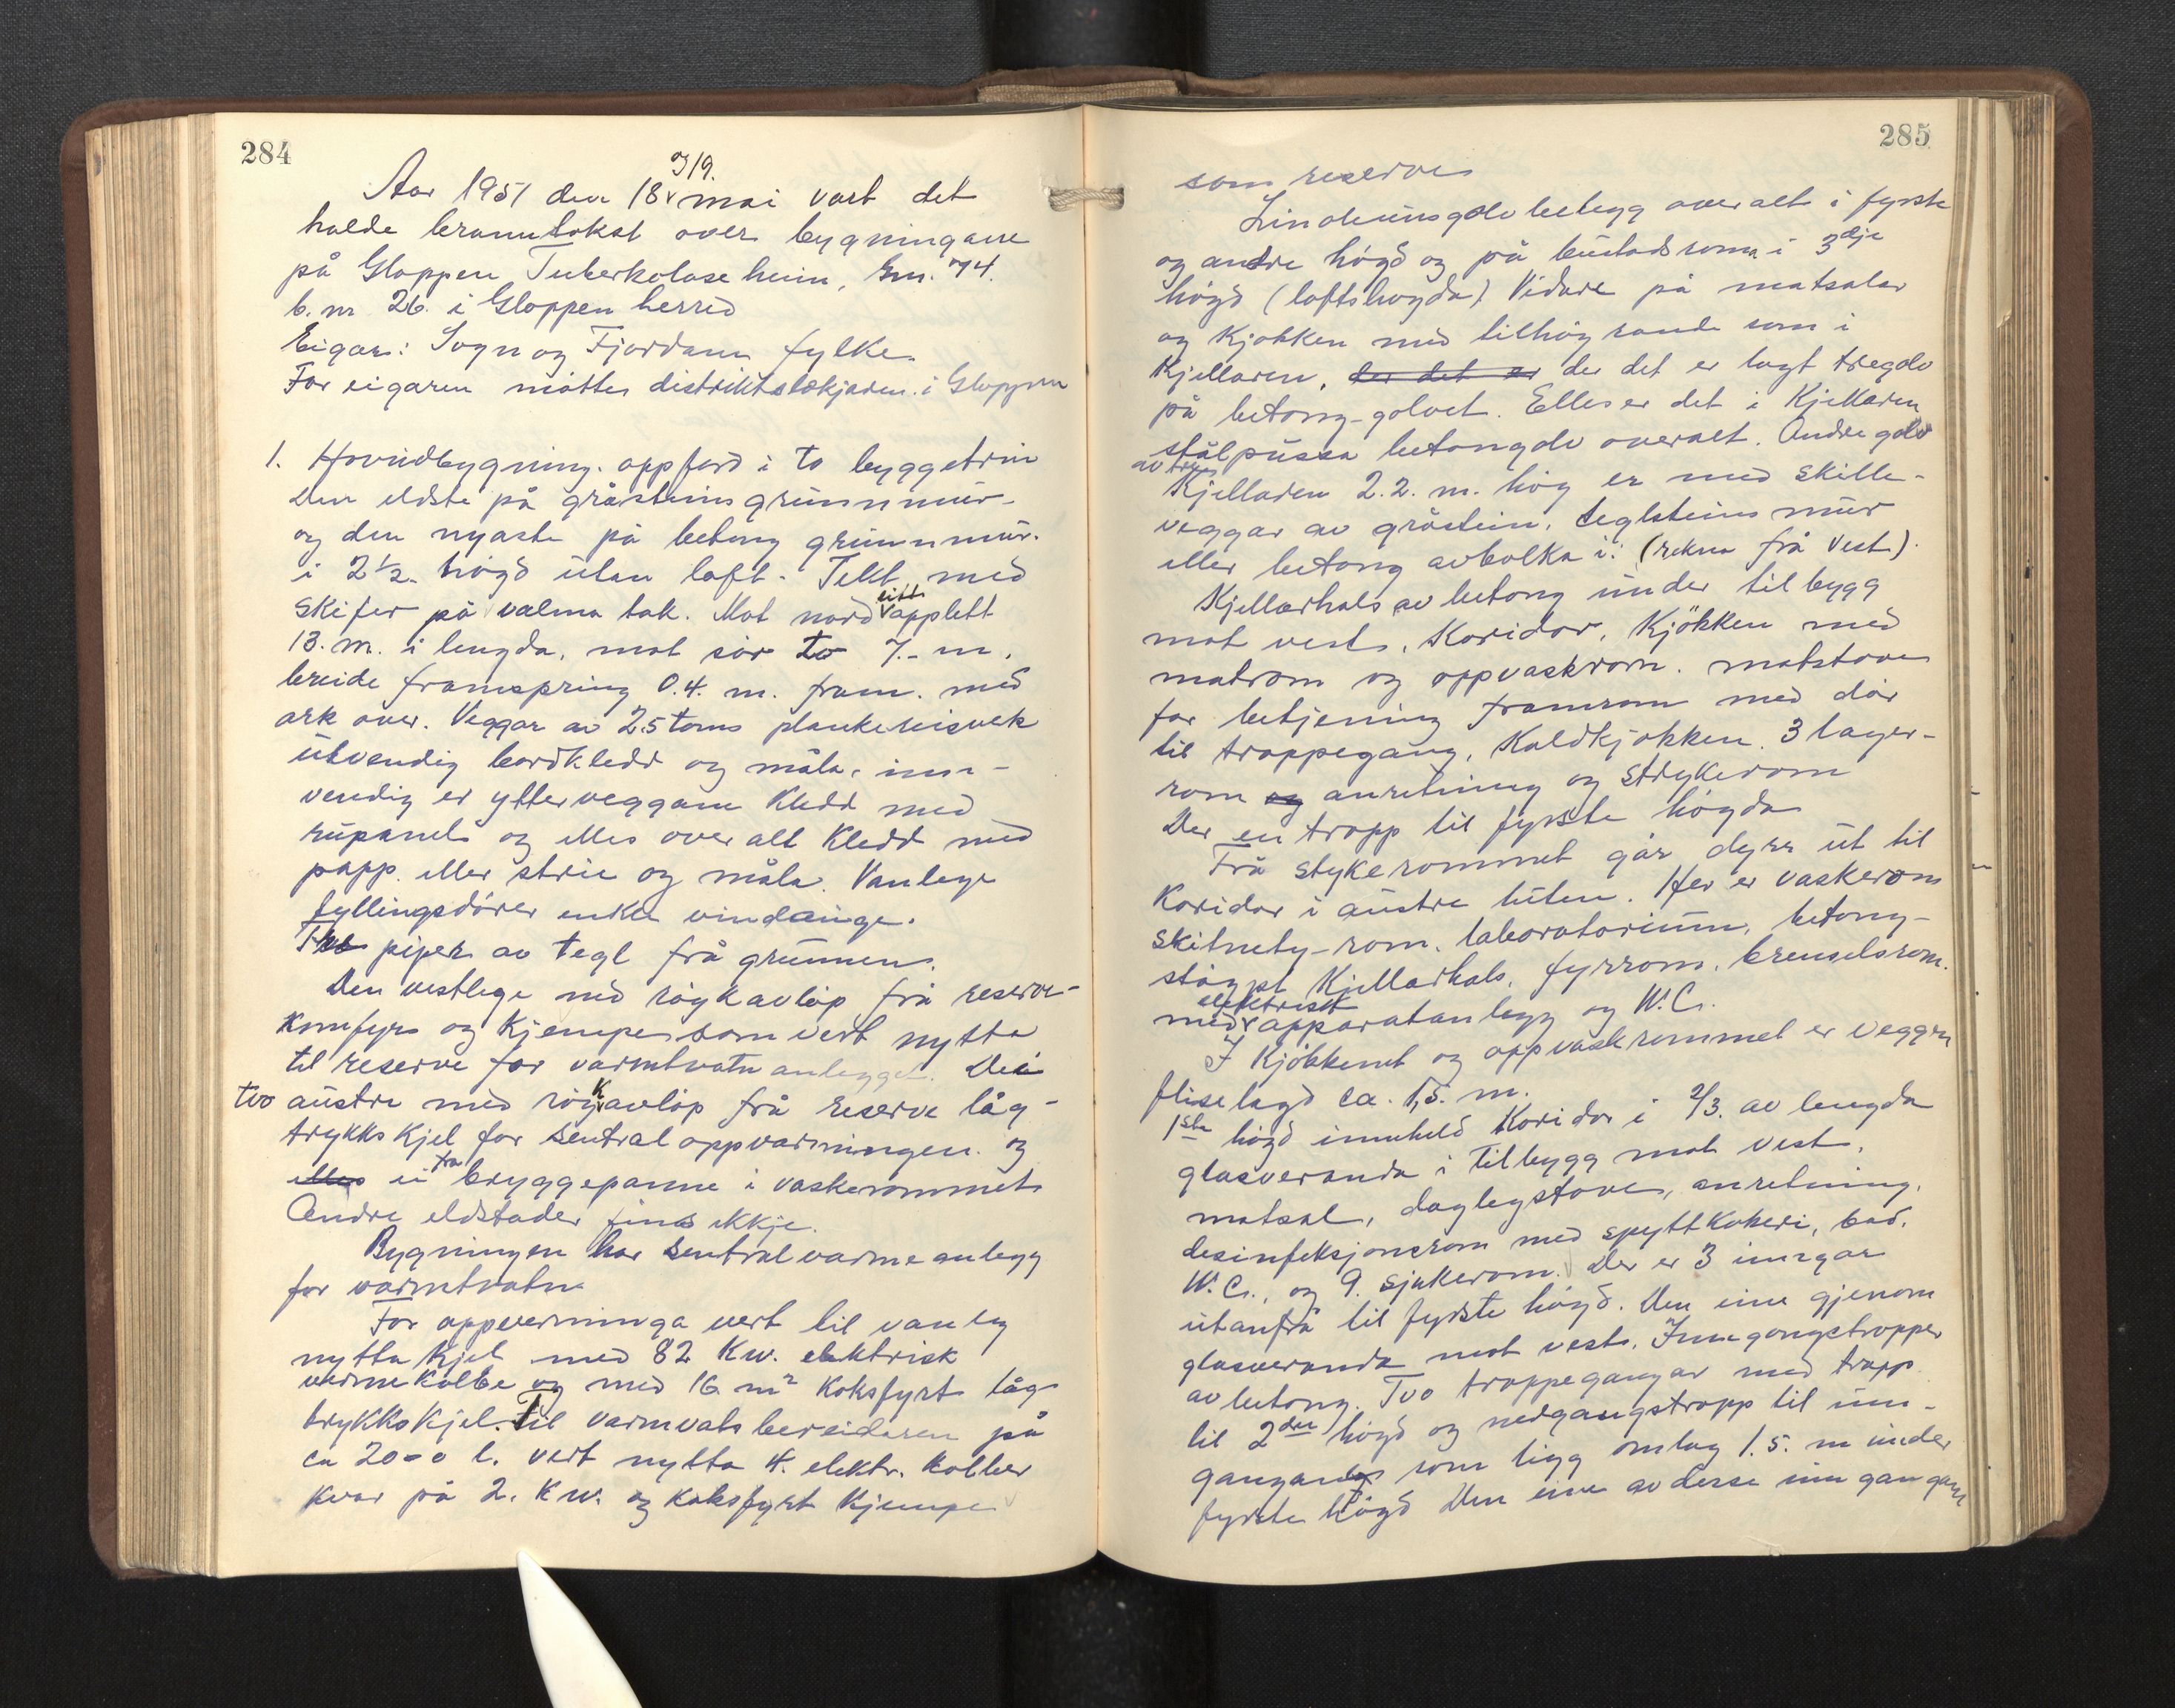 284
Aar 1951 den 18 og 19. mai vart det
halde branntakst over bygningane
på Gloppen Tuberkoloseheim, Gnr. 74.
b.nr 26. i Gloppen herred
Eigar: Sogn og Fjordane fylke
For eigaren møtte distriktslækjaren i Gloppen
1. Hovudbygning. oppførd i to byggetrin
Den eldste på gråsteins grunnmur
og den nyaste på betong grunnmur.
i 2 1/2 høgd utan loft. Tekt med
skifer på valma tak. Mot nord eitt opplett
13. m. i lengda, mot sør to 7.- m.
breide framspring 0.4. m. fram. med
ark over. Veggar av 2.5 toms plankereisverk
utvendig bordkledd og måla, inn-
vendig er ytterveggane kledd med
rupanel og elles over alt kledd med
papp eller strie og måla. Vanlege
fyllingsdører enkle vindauge.
Tre piper av tegl frå grunnen.
Den vestlege med røykavløp frå reserve-
komfyr og kjempe som vert nytta
til reserve for varmtvatnanlegget. Dei
tvo austre med røykavløp frå reserve låg-
trykkskjel for sentraloppvarmingen. og
elles ei frå bryggepanne i vaskerommet
Andre eldstader fins ikkje.
Bygningen har sentralvarmeanlegg
for varmtvatn
For oppvarminga vert til vanleg
nytta kjel med 82 Kw. elektrisk
varmekolbe og med 16 m² koksfyrt låg-
trykkskjel. Til varmvatsbereidaren på
ca 2000 l. vert nytta 4. elektr. kolber
kvar på 2. Kw. og koksfyrt kjempe
285
som reserve
Linoleumsgolvbelegg overalt i fyrste
og andre høgd og på bustadsrom i 3dje
høgd (loftshøgda) Vidare på matsalar
og kjøkken med tilhøyrande rom i
Kjellaren, der det er der det er lagt tregolv
på betong-golvet. Elles er det i Kjellaren
stålpussa betongolv overalt. Andre golv
av tre
Kjellaren 2.2. m. høg er med skille-
veggar av gråstein, teglsteins mur
eller betong avbolka i: (rekna frå vest).
Kjellarhals av betong under tilbygg
mot vest, Koridor, Kjøkken med
matrom og oppvaskrom. matstove
for betjening framrom med dør
til trappegang, Kaldkjøkken. 3 lager-
rom og anretning og strykerom
Der en trapp til fyrste høgda
Frå stykerommet går dyrr ut til
Koridor i austre luten. Her er vaskerom
skitnety-rom. laboratorium, betong-
støypt Kjellarhals, fyrrom. brenselsrom.
med elektrisk apparatanlegg og W.C.
I Kjøkkenet og oppvaskrommet er veggen
fliselagd ca. 1,5. m.
1ste høgd inneheld Koridor i 2/3. av lengda
glasveranda i tilbygg mot vest.
matsal, daglegstove, anretning.
desinfeksjonsrom med spyttkokeri, bad.
W.C., og 9. sjukerom. Der er 3 inngar
utanfrå til fyrste høgd. Den eine gjenom
glasveranda mot vest. Inngongstropper
av betong. Tvo trappegangar med trapp
til 2den høgd og nedgangstrapp til inn-
gangane som ligg omlag 1.5. m under
fyrste høgd Den eine av desse inngangane